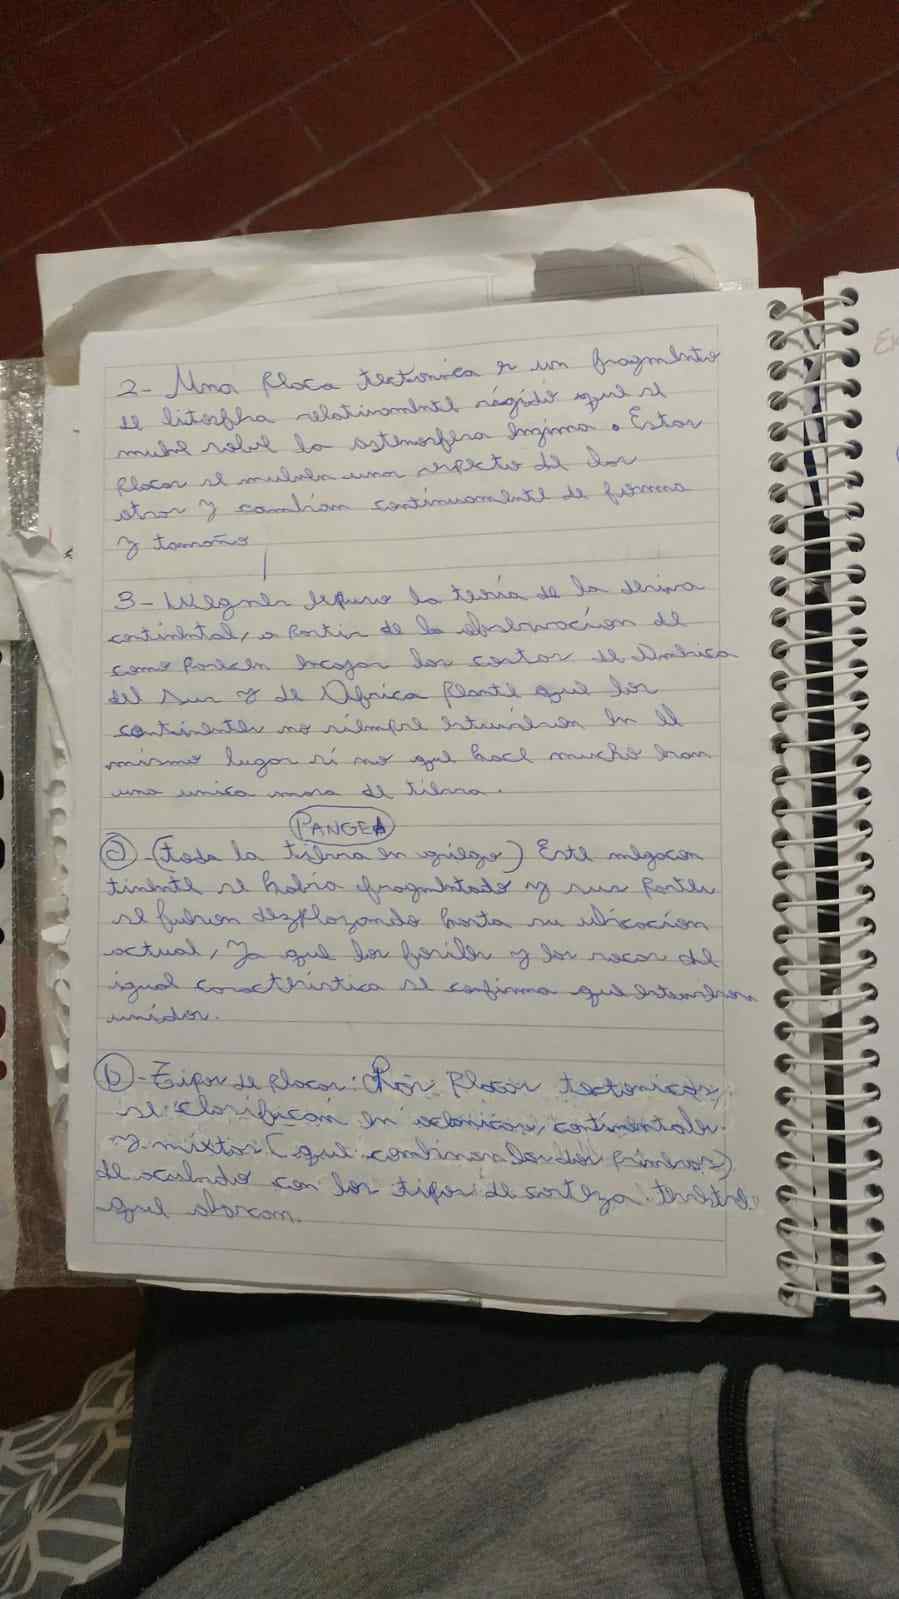 2- Una placa tectonica es un fragmento
de litosfera relativamente rígido que se
mueve sobre la astenosfera encima. Estas
placas se mueven unas respecto de las
otras y cambian continuamente de forma
y tamaño
3- Wegner expuso la teoría de la deriva
continental, a partir de la observacion de
como parecen encajar las costas de América
del Sur y de Africa plantó que los
continentes no siempre estuvieron en el
mismo lugar si no que hace mucho eran
una unica masa de tierra.
PANGEA
a - (toda la tierra en griego) Este megacon
tinente se habría fragmentado y sus partes
se fueron dezplazando hasta su ubicacion
actual, Ya que los fosiles y las rocas de
igual caracteristica se confirma que estuvieron
unidos.
b - Tipos de placas: Las Placas tectonicas,
se clasifican en oceanicas, continentales
y mixtas (que combinan las dos primeras)
de acuerdo con los tipos de corteza terrestre
que abarcan.